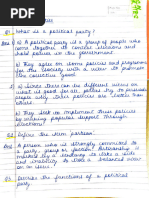 Q1 What is a political party?
Ans a) A political party is a group of people who
come together to contest elections and
hold power in the government.
b) They agree on some policies and programmes
for the society with a view to promote
the collective good.
c) Since there can be different views on
what is good for all, parties try to persuade
people why their policies are better than
others.
d) They seek to implement these policies
by winning popular support through
elections.
Q2 Define the term partisan?
Ans A person who is strongly committed to
a party, group or faction. Partisanship is
marked by a tendency to take a side
and inability to take a balanced view
on an issue.
Q3 Describe the functions of a political